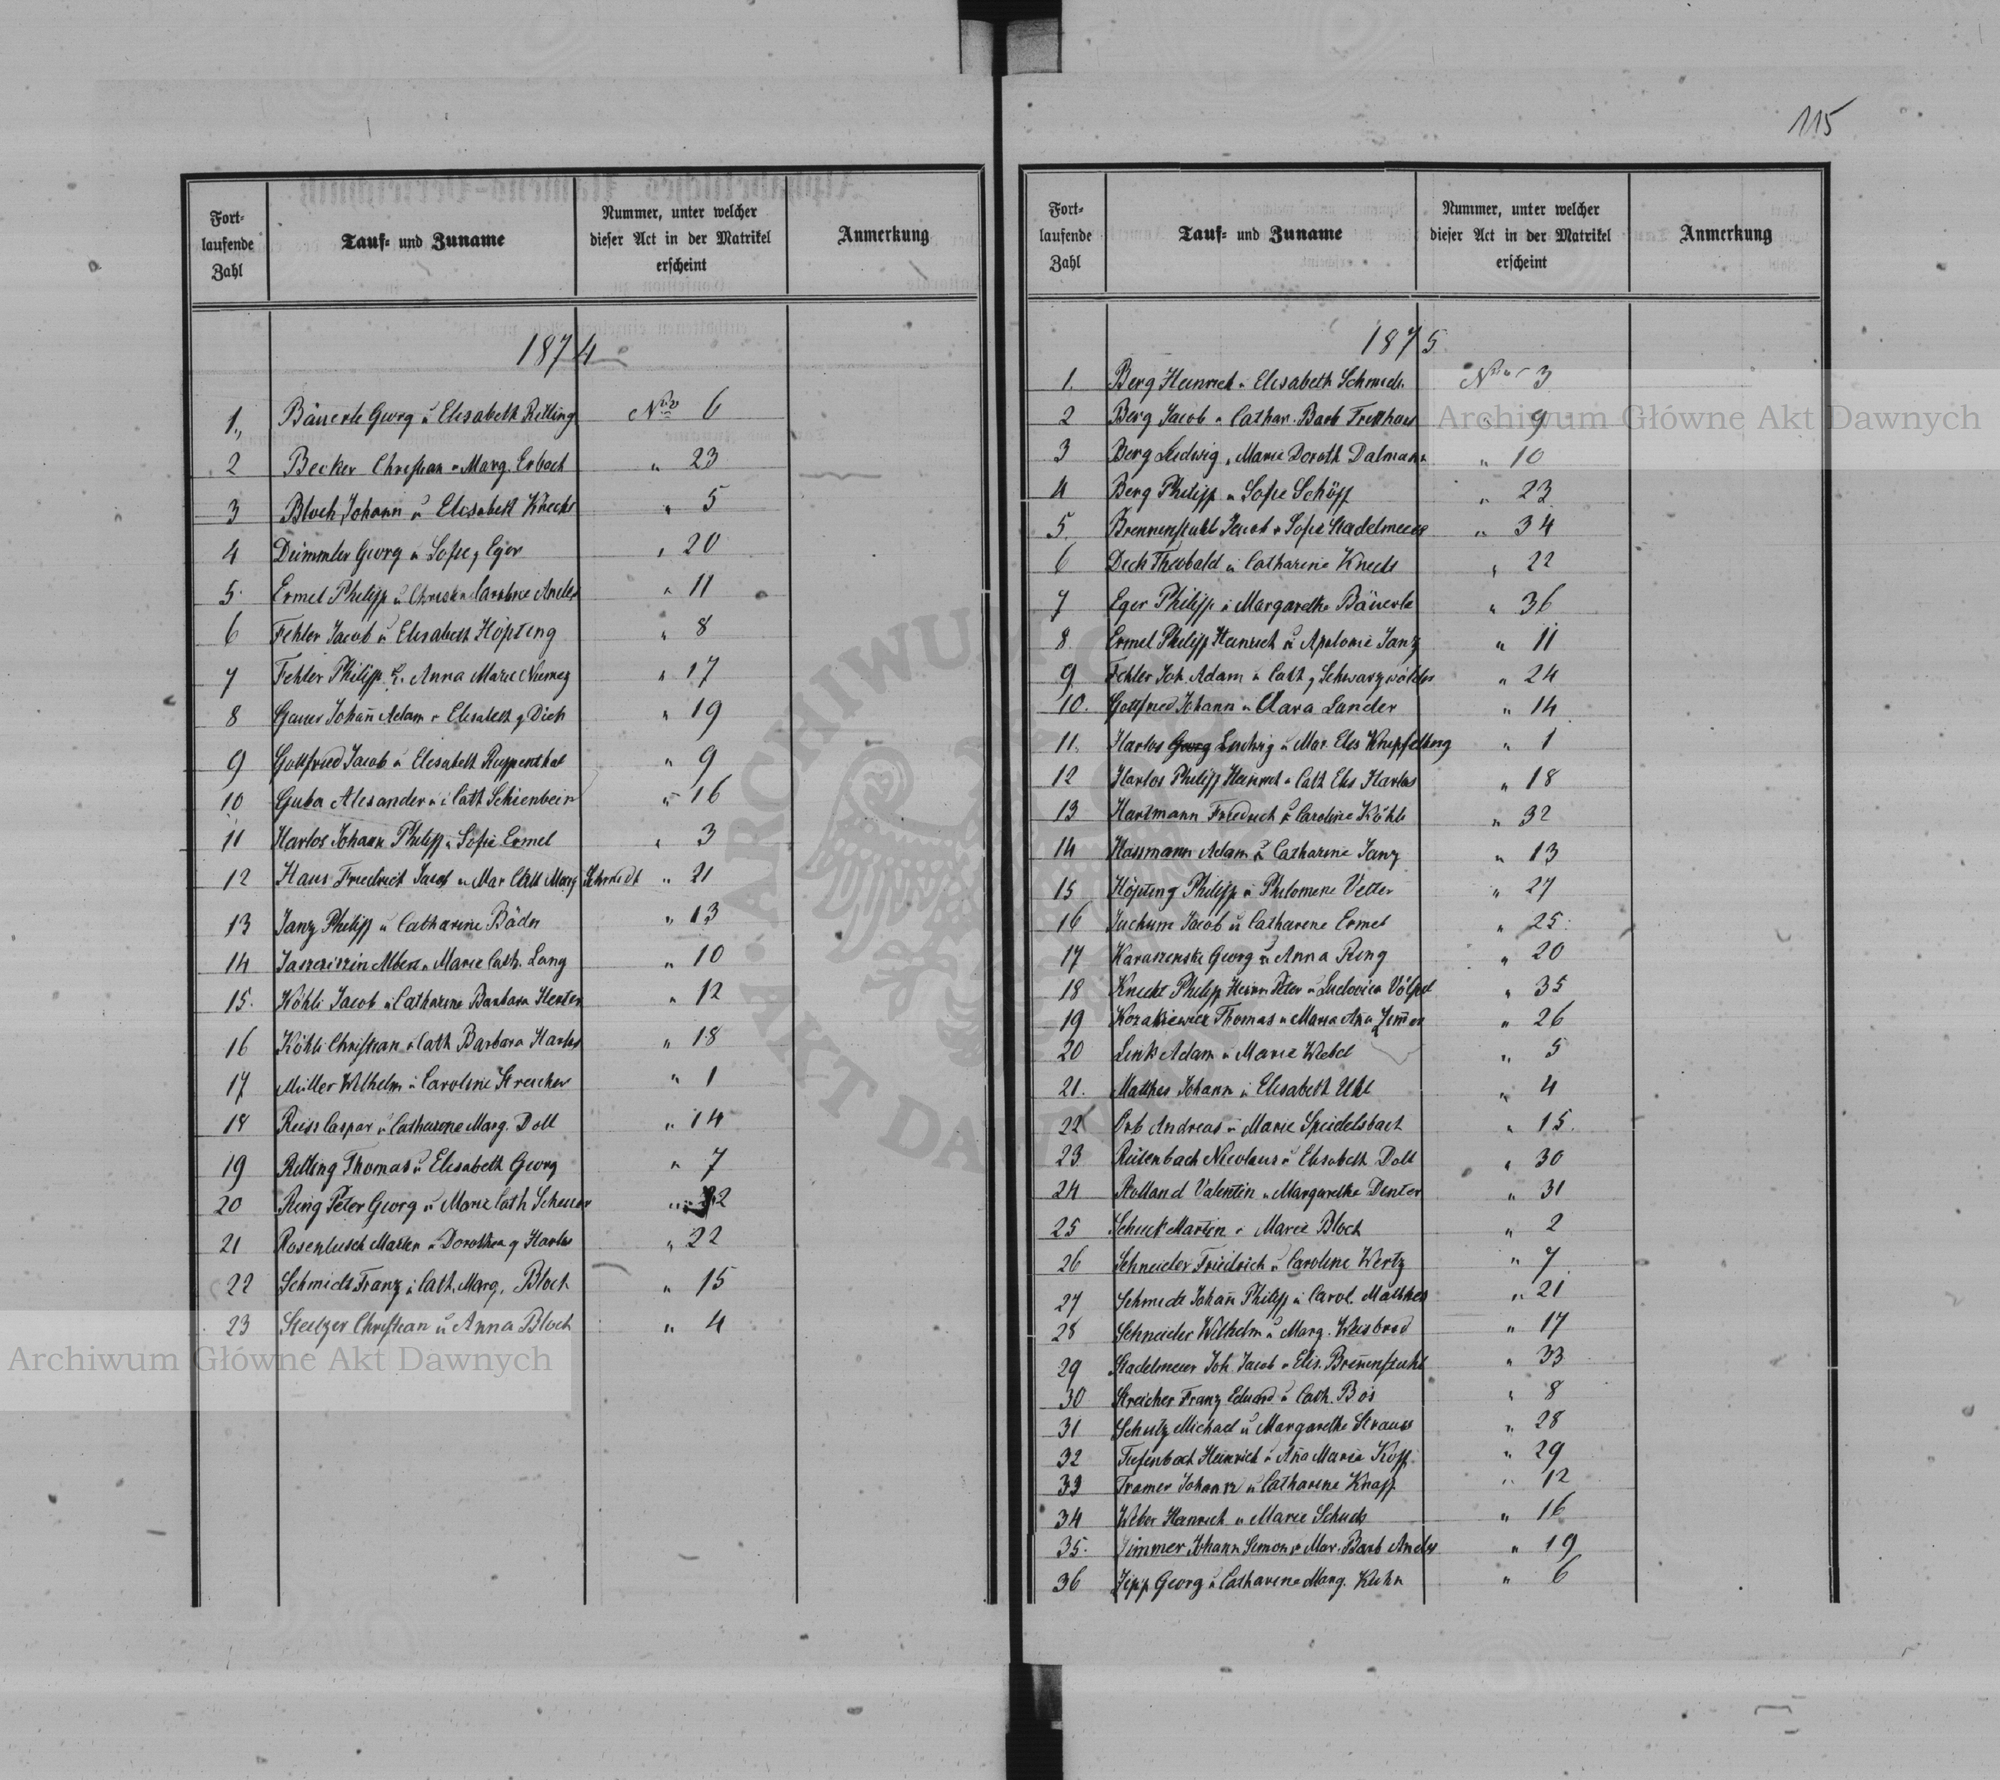 115
Fort-
laufende
Zahl
Tauf- und Zuname
Nummer, unter welcher
dieser Act in der Matrikel
erscheint
Anmerkung
1874
1., Bäuerle Georg u Elisabeth Retting No 6
2 Becker Christian u Marg. Erbach " 23
3 Bloch Johann u Elisabeth Knecht " 5
4 Deimmler Georg u Sofie, Eger " 20
5. Ermel Philipp u Caroline Andes " 11
6 Fehler Jacob u Elisabeth Höpting " 8
7 Fehler Philipp u. Anna Marie Niemez " 17
8 Gauer Johañ Adam u Elisabeth g Dich " 19
9 Gottfried Jacob u Elisabeth Ruppenthal " 9
10 Guba Alexander u Cath Schienbein " 16
11 Harlos Johann Philipp u Sofie Ermel " 3
12 Haus Friedrich Jacob u Mar Cath Marg Schmidt " 21
13 Janz Philipp u Catharine Bäder " 13
14 Albert u Marie Cath. Lang " 10
15. Köhli Jacob u Catharine Barbara Herter " 12
16 Köhli Christian u Cath Barbara Harlos " 18
17 Müller Wilhelm u Caroline Streicher " 1
18 Reiss Caspar u Catharine Marg. Doll " 14
19 Retting Thomas u Elisabeth Georg " 7
20 Ring Peter Georg u Marie Cath Scheuer " 2
21 Rosenbusch Martin u Dorothea g Harlos " 22
22 Schmidt Franz u Cath. Marg. Bloch " 15
23 Steltzer Christian u Anna Bloch " 4
Fort-
laufende
Zahl
Tauf- und Zuname
Nummer, unter welcher
dieser Act in der Matrikel
erscheint
Anmerkung
1875
1. Berg Heinrich u Elisabeth Schmidt No 3
2 Berg Jacob u Cathar. Barb " 9
3 Berg Ludwig u Marie Doroth Dalmann " 10
4 Berg Philipp u Sofie Schöpp " 23
5. Brennenstuhl Jacob u Sofie Stadelmeier " 34
6 Dech Theobald u Catharine Knecht " 22
7 Eger Philipp u Margarethe Bäuerle " 36
8 Ermel Philipp Heinrich u Apolonie Janz " 11
9 Fehler Joh. Adam u Cath g Schwarzwälder " 24
10. Gottfried Johann u Clara Lander " 14
11. Harlos Georg Ludwig u Mar. Elis Knipfelberg " 1
12 Harlos Philipp Heinrich u Cath Elis Harlos " 18
13 Hartmann Friedrich u Caroline Köhli " 32
14 Hassmann Adam u Catharine Janz " 13
15 Höpting Philipp u Philomene Vetter " 27
16 Juchum Jacob u Catharine Ermel " 25.
17 Karaszenski Georg u Anna Ring " 20
18 Knecht Philipp Heinr. Peter u Ludovica Völpel " 35
19 Kozakiewicz Thomas u Maria Anna Zimmer " 26
20 Link Adam u Marie Wiebel " 5
21. Matthes Johann u Elisabeth Uhl " 4
22 Orb Andreas u Marie Speidelsbach " 15.
23 Reitenbach Nicolaus u Elisabeth Doll " 30
24 Rolland Valentin u Margarethe Denter " 31
25 Schuck Martin u Marie Bloch " 2
26 Schneider Friedrich u Caroline Wertz " 7
27 Schmidt Johañ Philipp u Carol. Matthes " 21
28 Schneider Wilhelm u Marg. Weisbrod " 17
29 Stadelmeier Joh. Jacob u Elis. Breñenstuhl " 33
30 Streicher Franz Eduard u Cath. Bös " 8
31 Schutz Michael u Margarethe Strauss " 28
32 Tiefenbach Heinrich u Aña Maria Kopp. " 29
33 Tramer Johann u Catharine Knapp " 12
34 Weber Heinrich u Marie Schuck " 16
35. Zimmer Johann Simon u Mar. Barb Andes " 19
36 Zipp Georg u Catharine Marg. Kuhn " 6
Archiwum Główne Akt Dawnych
Archiwum Główne Akt Dawnych